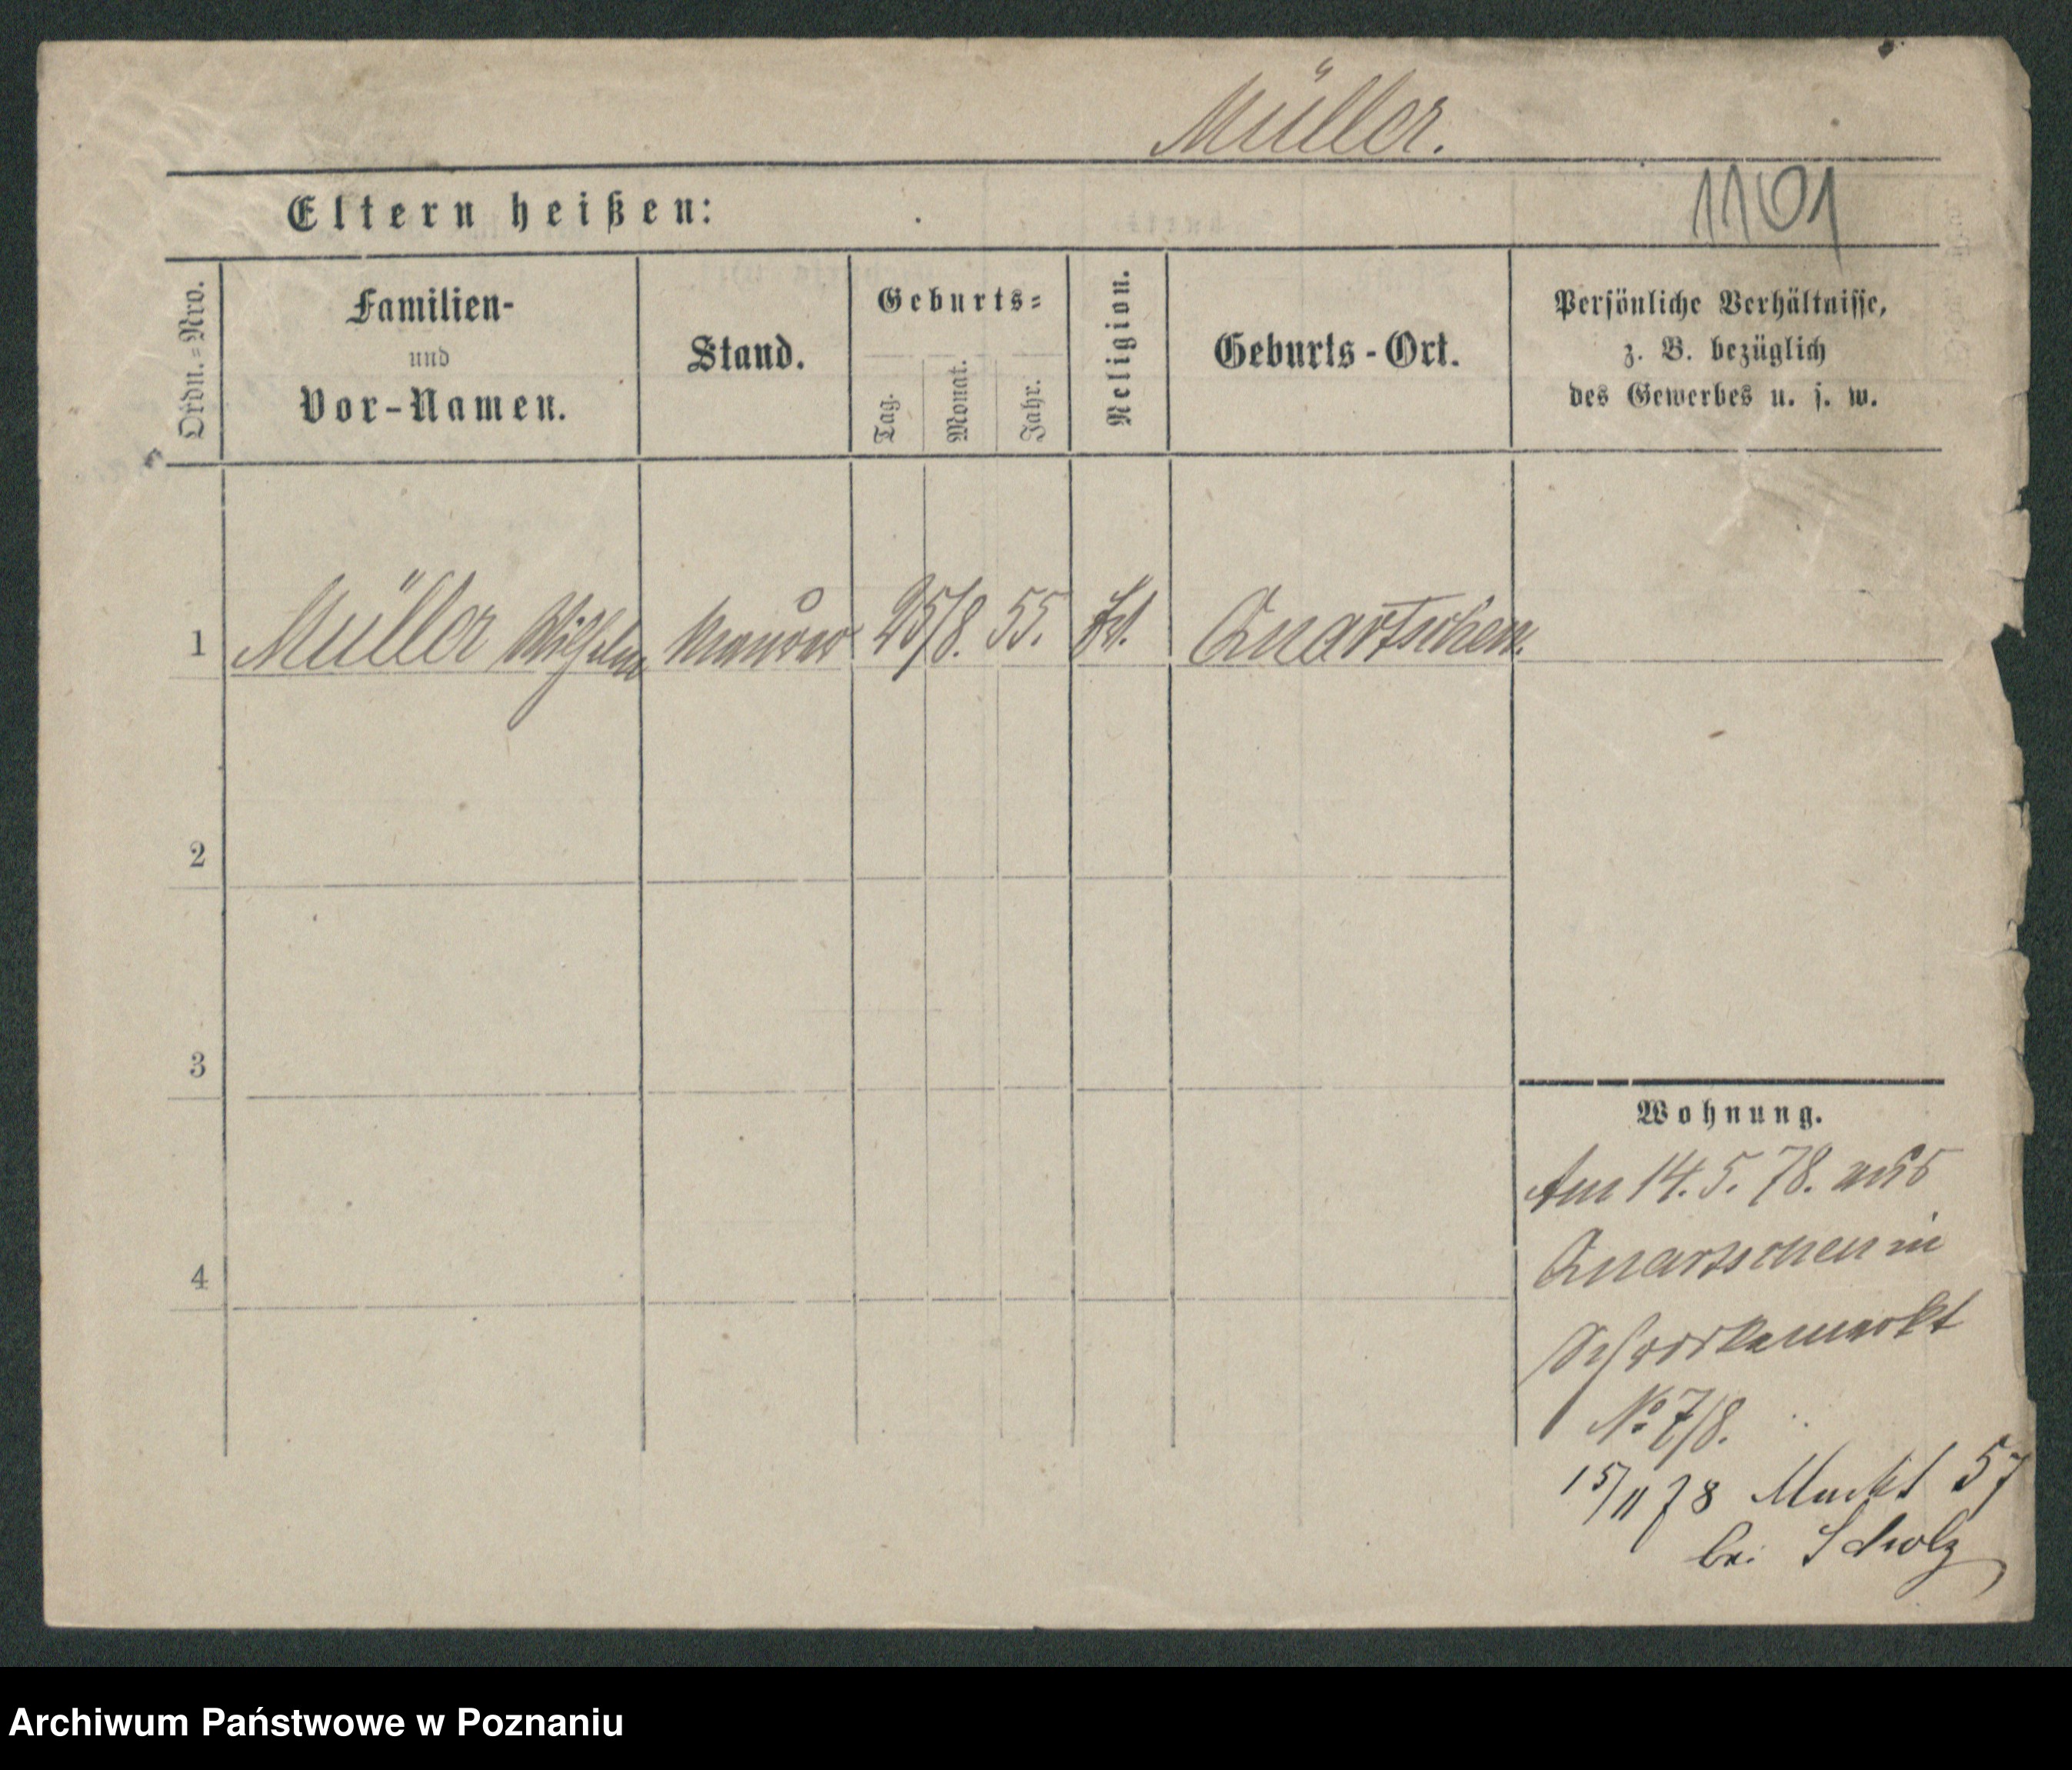 Müller.
1101
Eltern heißen:
Ordn.=Nro.
Familien-
und
Vor-Namen.
Stand.
Geburts=
Tag.
Monat.
Jahr.
Religion.
Geburts-Ort.
Persönliche Verhältnisse,
z. B. bezüglich
des Gewerbes u. s. w.
1 Müller Wilhelm Maurer 25/8. 55. Quartschen.
2
3
4
Wohnung.
Am 14. 5. 78. aus
Quartschen in
markt
No 7/8.
15/11 78 Markt 57
bei Scholz
Archiwum Państwowe w Poznaniu